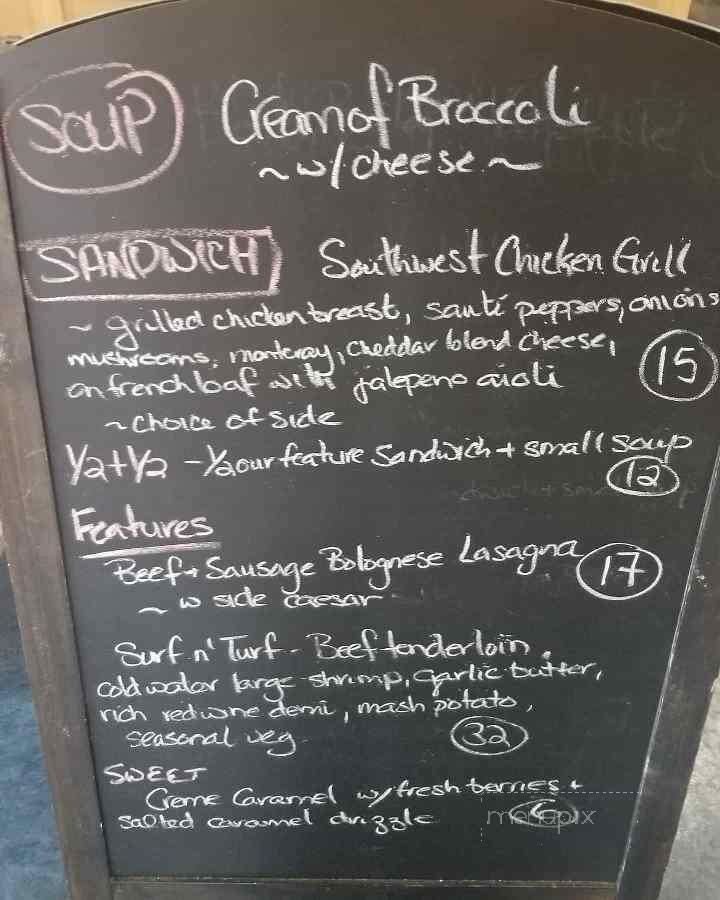 SOUP Cream of Broccoli
~ w/ cheese ~
SANDWICH Southwest Chicken Grill
~ grilled chicken breast, sauté peppers, onions
mushrooms, monteray, cheddar blend cheese,
on french loaf with jalepeno aioli 15
~ choice of side
1/2 + 1/2 - 1/2 our feature Sandwich + small soup
12
Features
Beef + Sausage Bolognese Lasagna 17
~ w side caesar
Surf n' Turf - Beef tenderloin,
cold water large shrimp, garlic butter,
rich red wine demi, mash potato,
seasonal veg 32
SWEET
Creme Caramel w/ fresh berries +
salted caramel drizzle 6
menupix